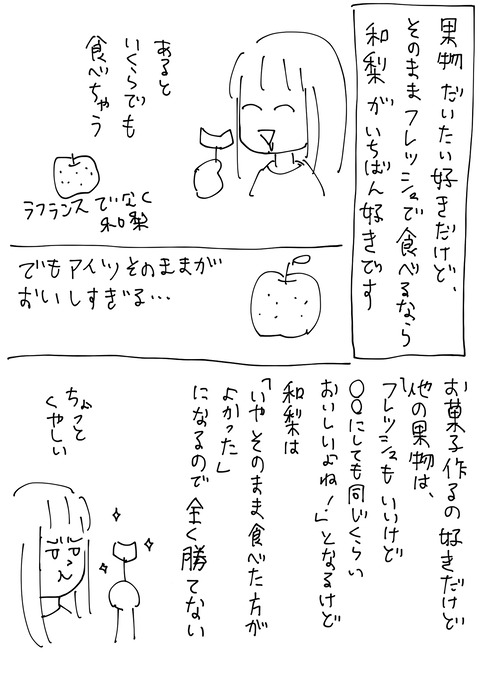 果物だいたい好きだけど、
そのままフレッシュで食べるなら
和梨がいちばん好きです
あると
いくらでも
食べちゃう
ラフランスでなく
和梨
でもアイツそのままが
おいしすぎる…
お菓子作るの好きだけど
他の果物は、
「フレッシュもいいけど
〇〇にしても同じくらい
おいしいよね!」となるけど
和梨は
「いやそのまま食べた方が
よかった」
になるので全く勝てない
ちょっと
くやしい